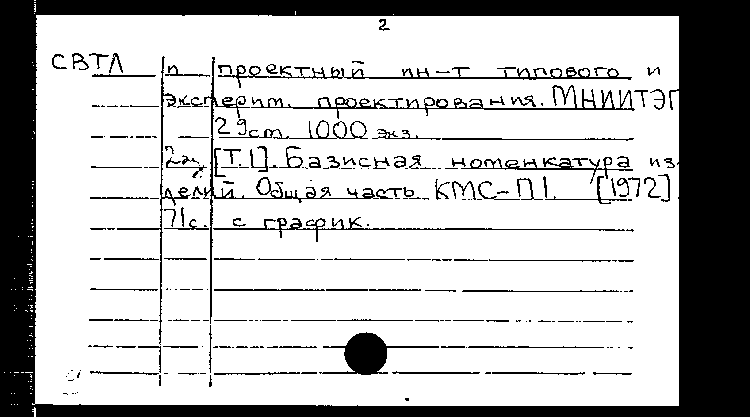 2
СВТЛ п проектный ин-т типового и
эксперим. проектирования. МНИИТЭП
29см. 1000 экз.
[Т.1]. Базисная номенкатура из-
делий. Общая часть. КМС-П1. [1972]
71с. с график.